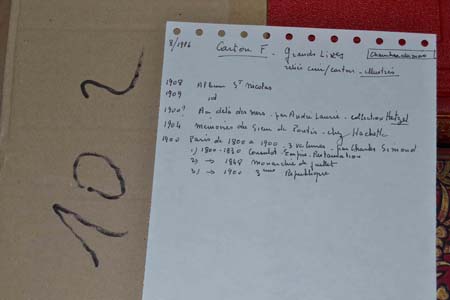 102
8/1986 Carton F. Grands Livres Chambre
reliés cuir/carton - illustrés
1908 Album St Nicolas
1909 id
1900? Au delà des mers - par André Laurie - collection Hetzel
1904 Memoires du Sieur de Pontis - chez Hachette
1900 Paris de 1800 à 1900 - 3 volumes - par Charles Simond
1) 1800-1830 Consulat Empire Restauration
2) → 1848 Monarchie de Juillet
3) → 1900 3eme République